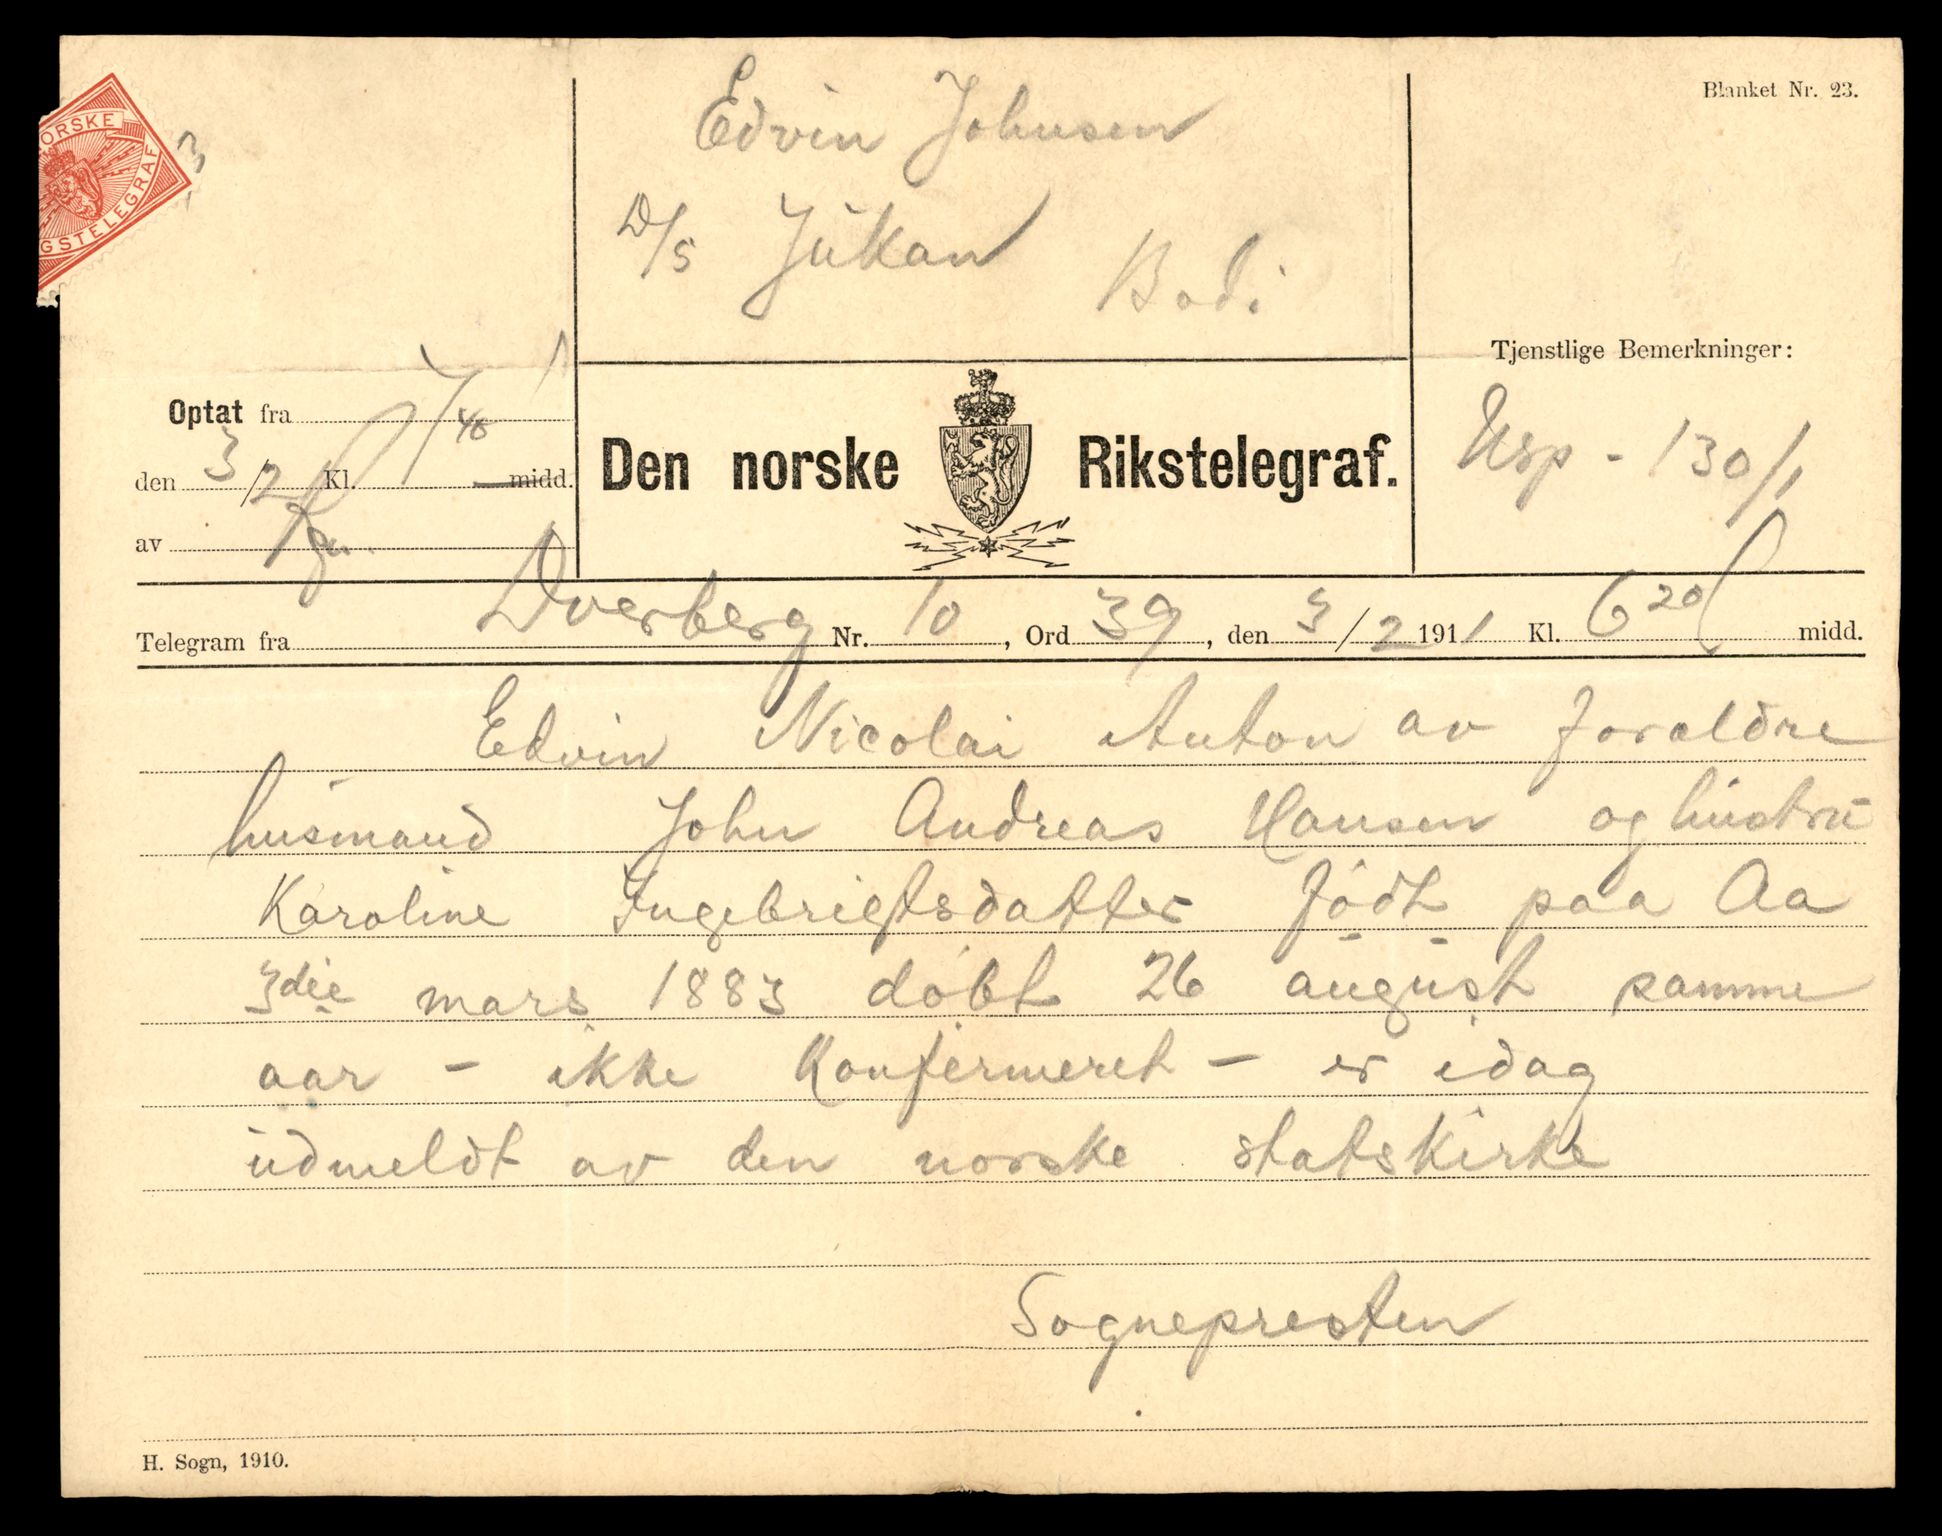 Edvin Johnsen
Blanket Nr. 23.
ORSKE
GSTELEGRAF
D/S Jükan
Bodi
Tjenstlige Bemerkninger:
Optat fra
7/40
Den norske Rikstelegraf.
130/1
den 3/2 Kl. midd.
av
Telegram fra Dverberg Nr. 10, Ord 39, den 3/2 1911 Kl. 6 20 midd.
Edvin Nicolai Anton av foraldre
husmand John Andreas Hansen og hustrü
Karoline Ingebrigtsdatter födt paa Aa
3die mars 1883 döbt 26 august samme
aar - ikke Konfermeret - er idag
üdmeldt av den norske statskirke
Sognepresten
H. Sogn, 1910.